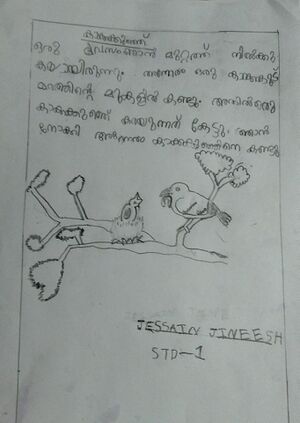 കാക്കക്കുഞ്ഞ്
ഒരു ദിവസം ഞാൻ മുറ്റത്ത് നിൽക്കു
കയായിരുന്നു. അന്നേരം ഒരു കാക്കക്കൂട്
മരത്തിന്റെ മുകളിൽ കണ്ടു. അതിൽ ഒരു
കാക്കക്കുഞ്ഞ് കരയുന്നത് കേട്ടു. ഞാൻ
നോക്കി അന്നേരം കാക്കക്കുഞ്ഞിനെ കണ്ടു
JESSAIN JINEESH
STD-1